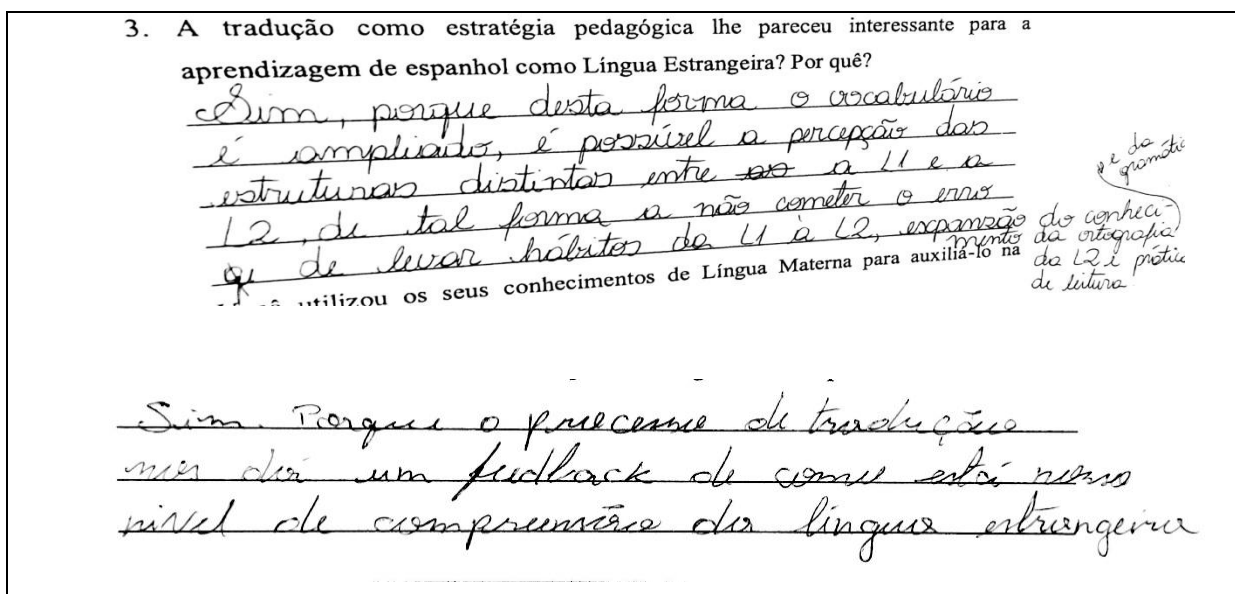 3. A tradução como estratégia pedagógica lhe pareceu interessante para a
aprendizagem de espanhol como Língua Estrangeira? Por quê?
Sim, porque desta forma o vocabulário
é ampliado, é possível a percepção das
estruturas distintas entre as a L1 e a
L2, de tal forma a não cometer o erro
de levar hábitos da L1 à L2, expansão do conheci-
mento da ortografia
e da
gramátic
da L2 e prática
de leitura.
utilizou os seus conhecimentos de Língua Materna para auxiliá-lo na
Sim. Porque o processo de tradução
nos dá um feedback de como está nosso
nível de compreensão da língua estrangeira